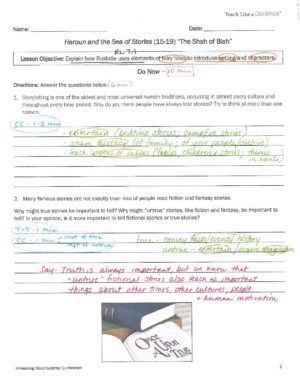 Teach Like a CHAMPION
Name: Date:
Haroun and the Sea of Stories (15-19) "The Shah of Blah"
RL 7.1
Lesson Objective: Explain how Rushdie uses elements of fairy tales to introduce setting and characters.
Do Now 10 min
Directions: Answer the questions below. (6 min)
1. Storytelling is one of the oldest and most universal human traditions, occurring in almost every culture and
throughout every time period. Why do you think people have always told stories? Try to think of more than one
reason.
CC - 1-2 min
- entertain (bedtime stories; campfire stories)
- share history (of family; of your people/culture)
- teach lessons or values (fables, children's stories; themes
in novels)
2. Many famous stories are not exactly true—lots of people read fiction and fantasy stories.
Why might true stories be important to tell? Why might "untrue" stories, like fiction and fantasy, be important to
tell? In your opinion, is it more important to tell fictional stories or true stories?
T+T - 1 min
CC - 1 min
impt of true
impt of untrue
true - convey facts/events/history
untrue - entertain/inspire imagination
Say: Truth is always important, but we know that
"untrue" fictional stories also teach us important
things about other times, other cultures, people
+ human motivation
Once
Upon
a
Time
Reading Reconsidered Curriculum